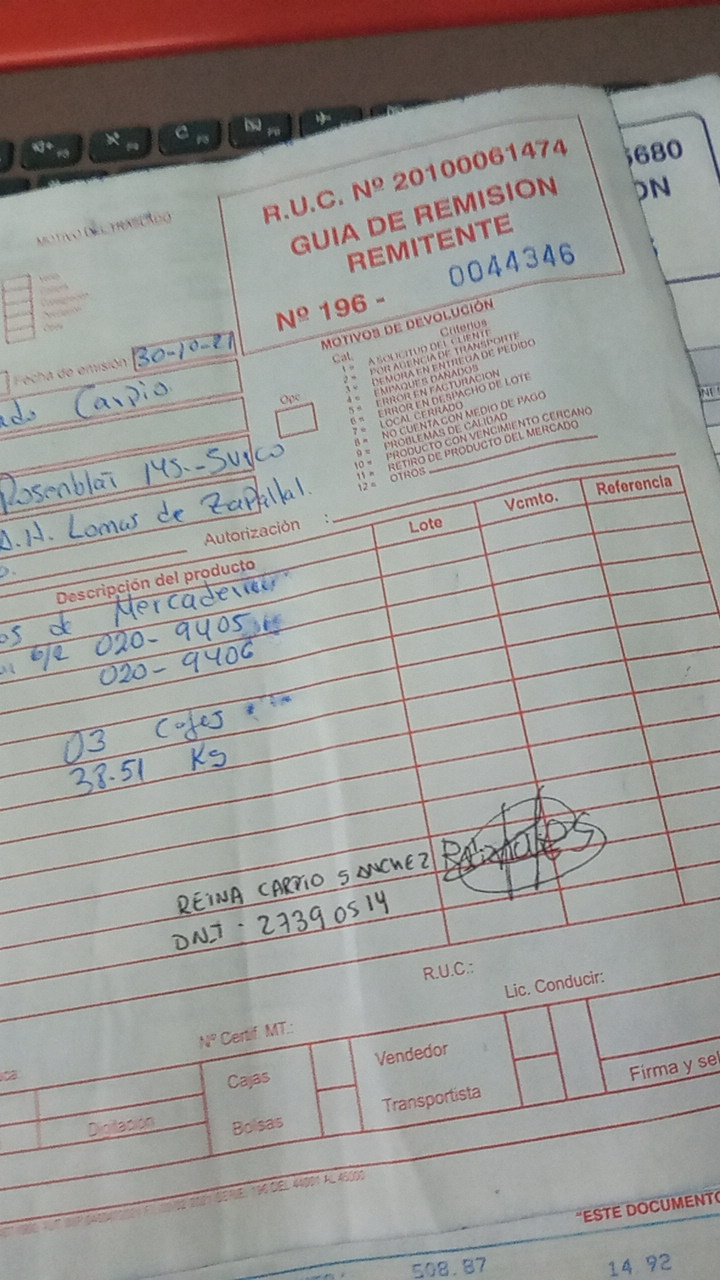 6680
ON
R.U.C. Nº 20100061474
GUIA DE REMISION
REMITENTE
Nº 196 - 0044346
MOTIVO DEL TRASLADO
Fecha de emisión 30-10-21
Carpio
Rosenblat 145.-Surco
A.H. Lomas de Zapallal.
MOTIVOS DE DEVOLUCIÓN
Cal. Criterios
1 = A SOLICITUD DEL CLIENTE
2 = POR AGENCIA DE TRANSPORTE
3 = DEMORA EN ENTREGA DE PEDIDO
4 = EMPAQUES DAÑADOS
5 = ERROR EN FACTURACION
6 = ERROR EN DESPACHO DE LOTE
7 = LOCAL CERRADO
8 = NO CUENTA CON MEDIO DE PAGO
9 = PROBLEMAS DE CALIDAD
10 = PRODUCTO CON VENCIMIENTO CERCANO
11 = RETIRO DE PRODUCTO DEL MERCADO
12 = OTROS
Autorización :
Descripción del producto Lote Vcmto. Referencia
de Mercaderia
020-9405
020-9406
03 Cajas
38.51 Kg
REINA CARPIO SANCHEZ
DNI: 27390514
R.U.C.:
Nº Certif. MT.: Lic. Conducir:
Cajas Vendedor
Digitación Bolsas Transportista Firma y sel
"ESTE DOCUMENTO
508.87 14 92